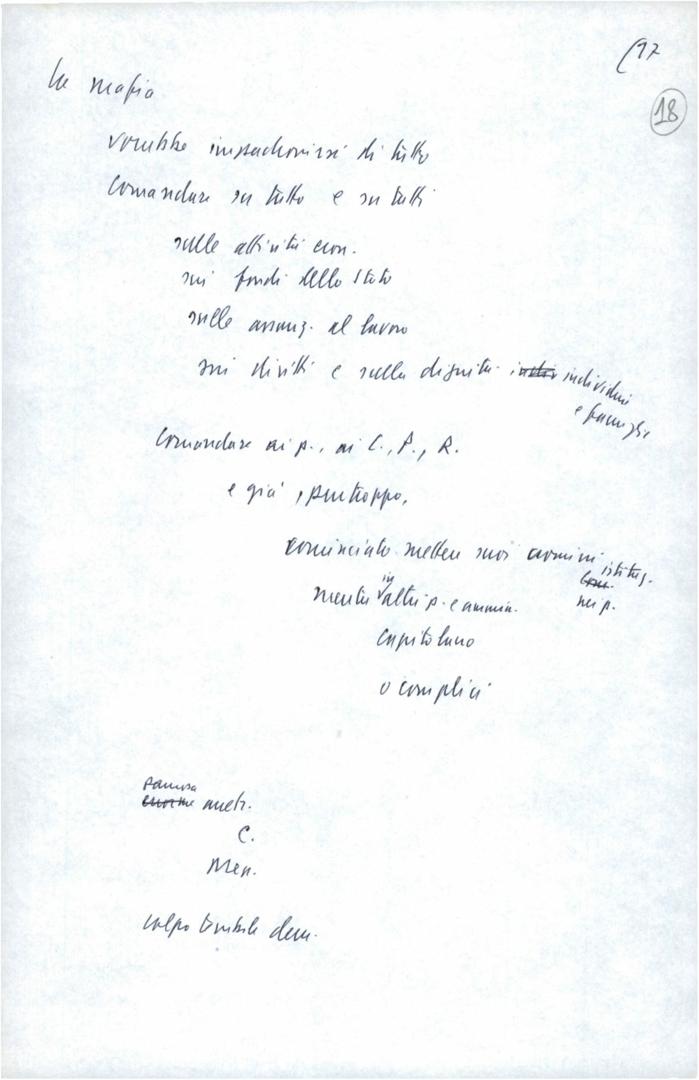 (17
18
La mafia
vorrebbe impadronirsi di tutto
Comandare su tutto e su tutti
sulle attività econ.
sui fondi dello Stato
sulle assunz. al lavoro
sui diritti e sulla dignità individui
e famiglie
Comandare ai p., ai C., P., R.
e già, purtroppo,
cominciato mettere suoi uomini istituz.
nei p.
mentre in altri p. e ammin.
capitolano
o complici
C.
colpo terribile dem.